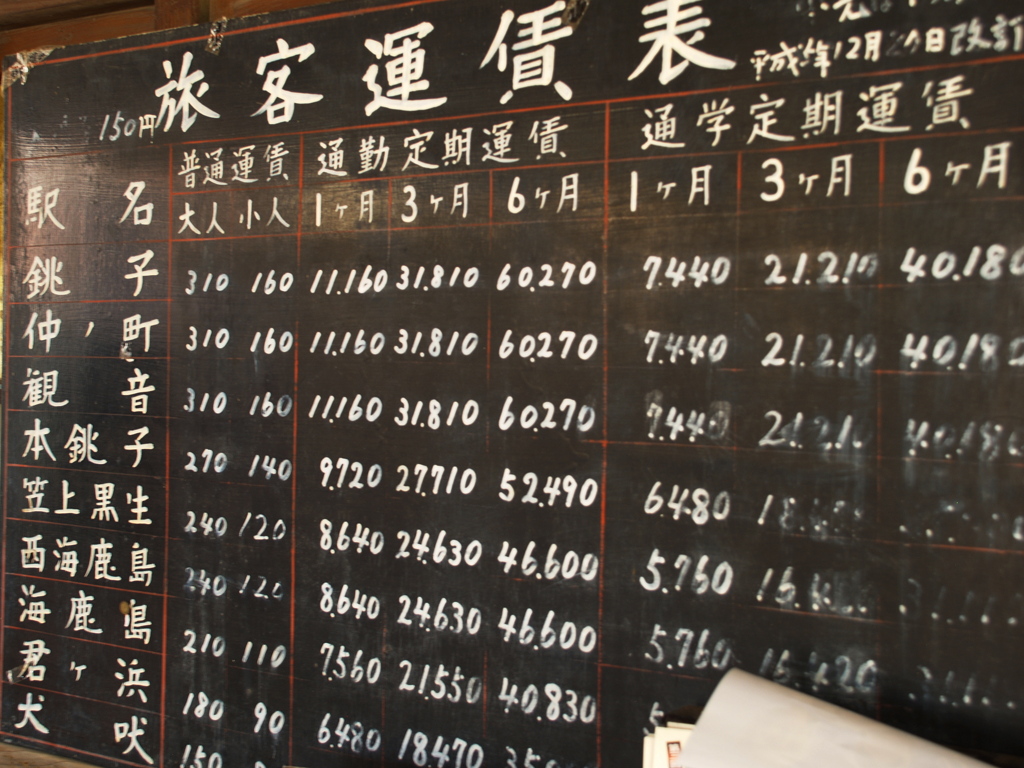 旅客運賃表
平成 年12月 日改訂
150円
駅名 普通運賃 通勤定期運賃 通学定期運賃
大人 小人 1ヶ月 3ヶ月 6ヶ月 1ヶ月 3ヶ月 6ヶ月
銚子 310 160 11.160 31.810 60.270 7.440 21.210 40.180
仲ノ町 310 160 11.160 31.810 60.270 7.440 21.210 40.180
観音 310 160 11.160 31.810 60.270 7.440 21.210 40.180
本銚子 270 140 9.720 27.710 52.490 6.480
笠上黒生 240 120 8.640 24.630 46.600 5.760
西海鹿島 240 120 8.640 24.630 46.600 5.760 16.420
海鹿島 210 110 7.560 21.550 40.830
君ヶ浜 180 90 6.480 18.470
犬吠 150